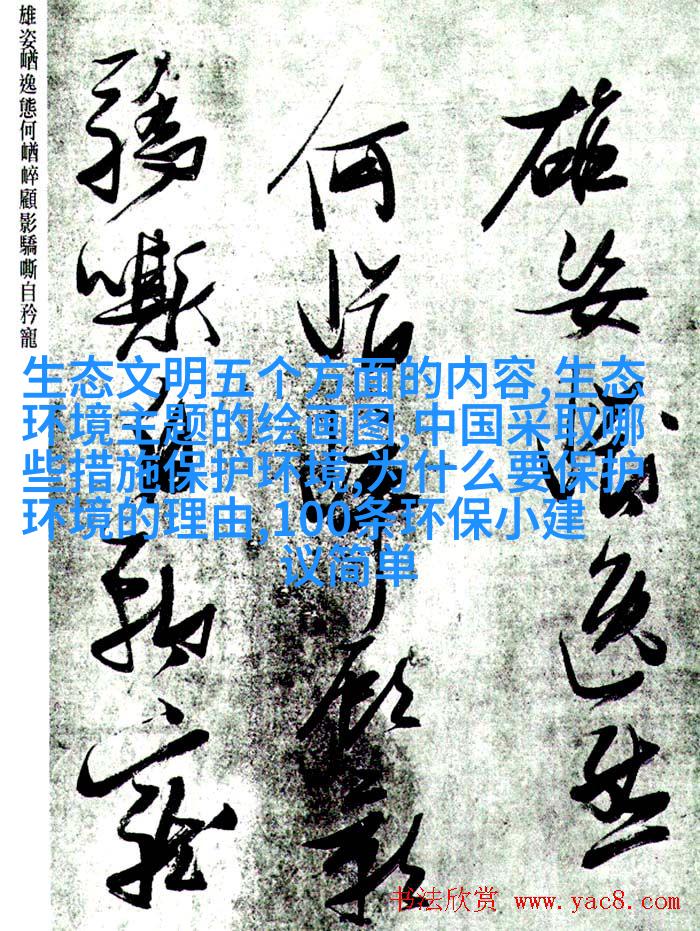 雄姿崷逸態
何崷崒顧影
驕嘶自矜寵
雄姿崷逸態何崷崒顧影驕嘶自矜寵
生态文明五个方面的内容,生态
环境主题的绘画图,中国采取哪
些措施保护环境,为什么要保护
环境的理由,100条环保小建
议简单
书法欣赏 www.yac8.com